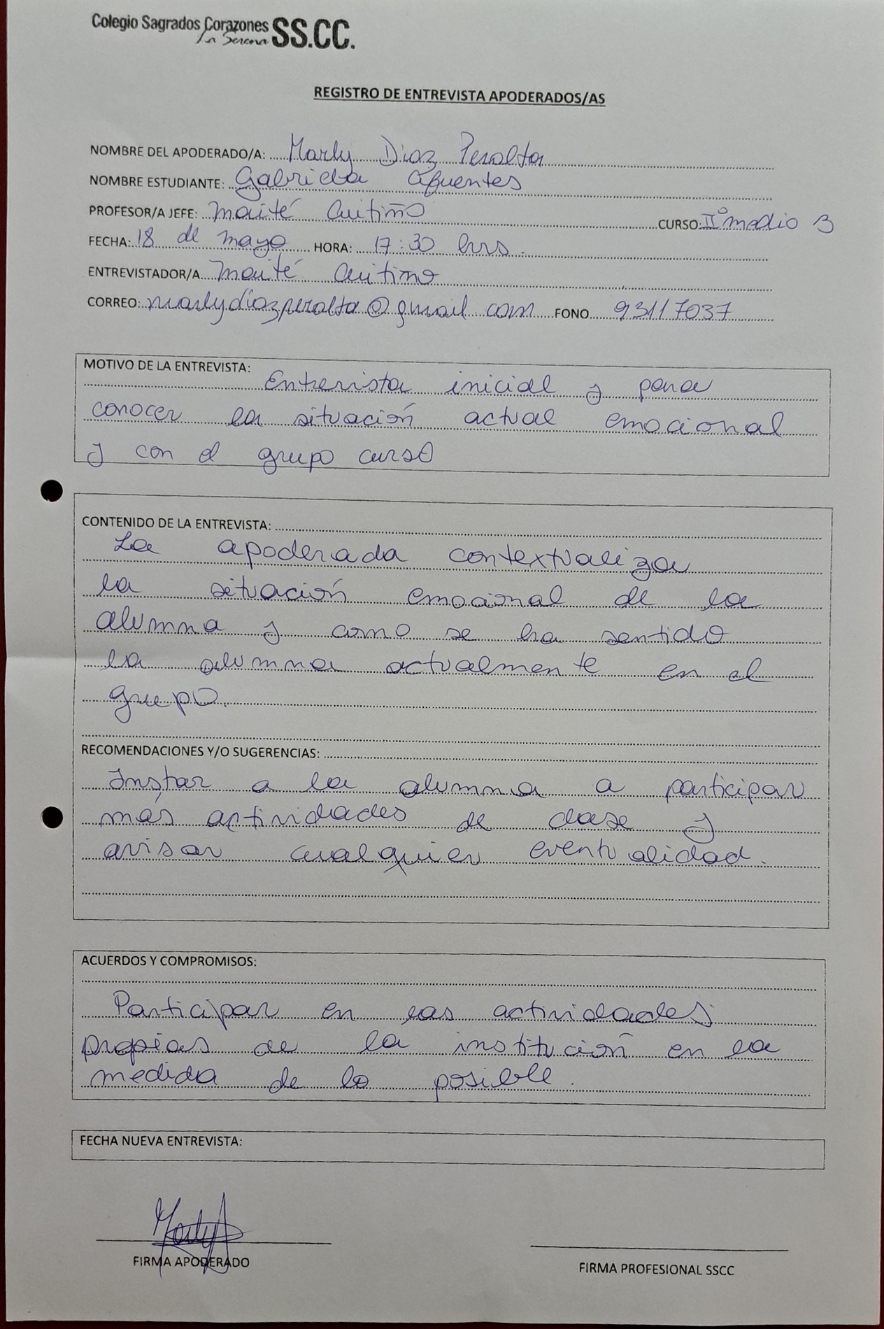 Colegio Sagrados Corazones SS.CC.
La Serena
REGISTRO DE ENTREVISTA APODERADOS/AS
NOMBRE DEL APODERADO/A: Marly Diaz Peralta
NOMBRE ESTUDIANTE: Gabriela Cifuentes
PROFESOR/A JEFE: Maité Cuitiño CURSO: IIº medio B
FECHA: 18 de mayo HORA: 17:30 hrs.
ENTREVISTADOR/A Maité Cuitiño
CORREO: marlydiazperalta@gmail com FONO 93117037
MOTIVO DE LA ENTREVISTA:
Entrevista inicial y para
conocer la situación actual emocional
y con el grupo curso
CONTENIDO DE LA ENTREVISTA:
La apoderada contextualiza
la situación emocional de la
alumna y como se ha sentido
la alumna actualmente en el
grupo.
RECOMENDACIONES Y/O SUGERENCIAS:
Instar a la alumna a participar
más actividades de clase y
avisar cualquier eventualidad.
ACUERDOS Y COMPROMISOS:
Participar en las actividades
propias de la institución en la
medida de lo posible.
FECHA NUEVA ENTREVISTA:
Marly D
FIRMA APODERADO
FIRMA PROFESIONAL SSCC